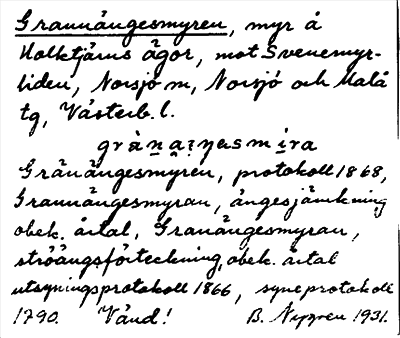 Grannängesmyren, myr å
Holktjärns ägor, mot Svenemyr-
liden, Norsjö m, Norsjö och Malå
tg, Västerb. l.
Gränängesmyren, protokoll 1868,
Grannängesmyran, ängesjämkning
obek. årtal, Granängesmyran,
ströängsförteckning, obek. årtal
utsyningsprotokoll 1866, syneprotokoll
1790. Vänd! B. Nygren 1931.